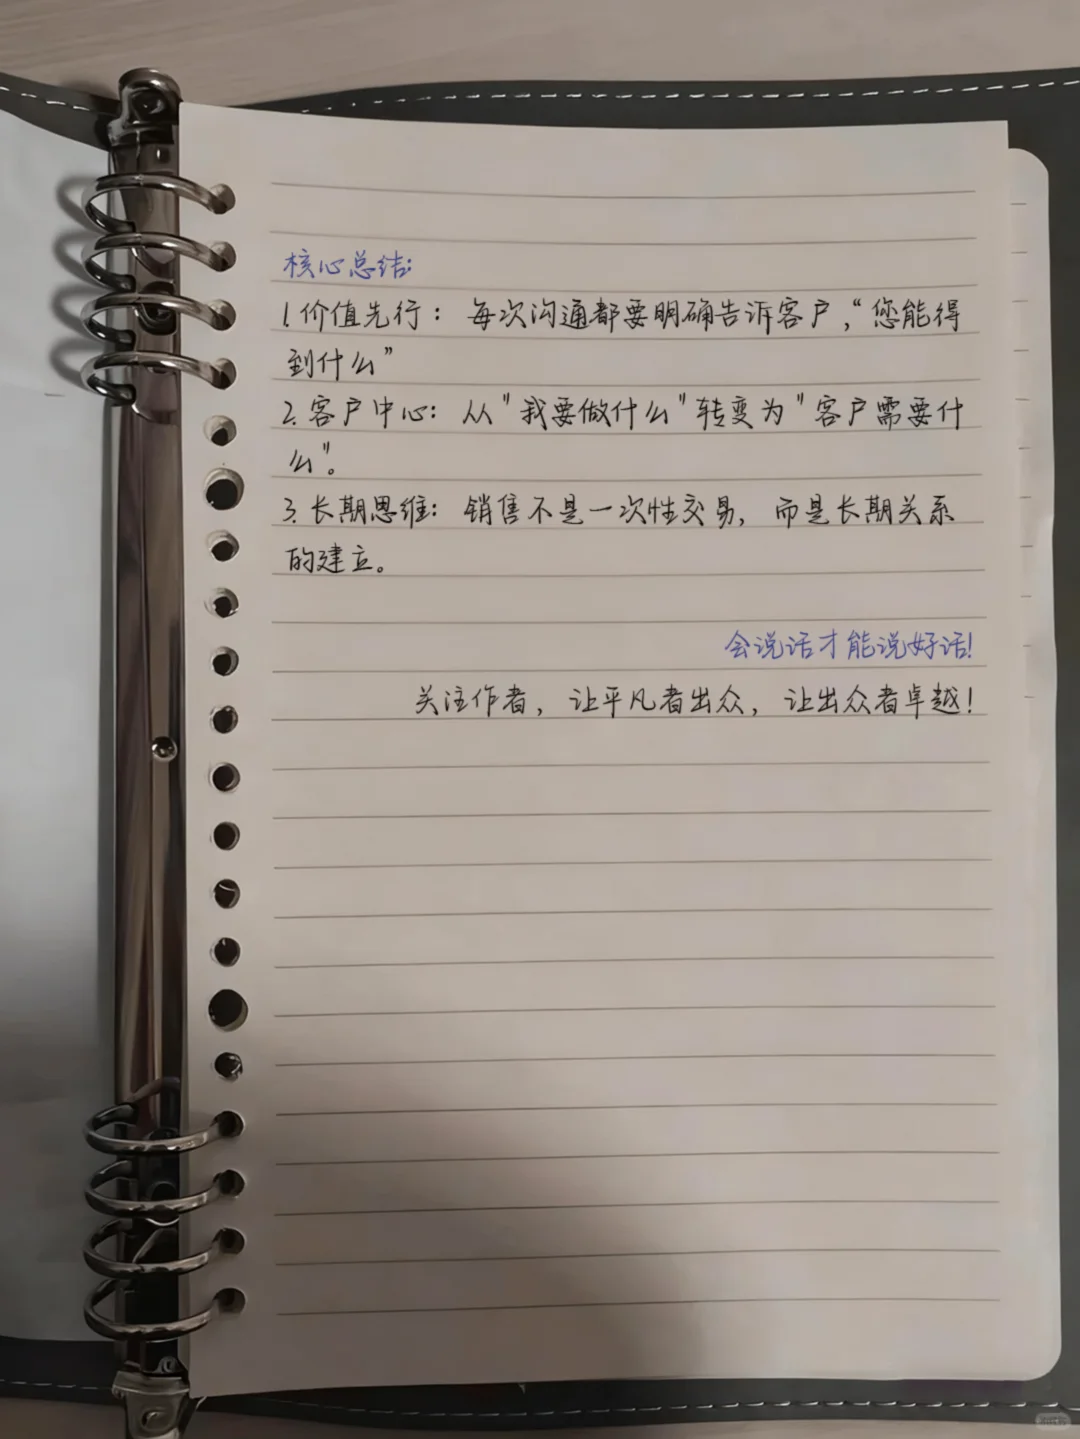 核心总结:
1.价值先行：每次沟通都要明确告诉客户，“您能得
到什么”
2.客户中心：从"我要做什么"转变为"客户需要什
么"。
3.长期思维：销售不是一次性交易，而是长期关系
的建立。
会说话才能说好话!
关注作者，让平凡者出众，让出众者卓越!